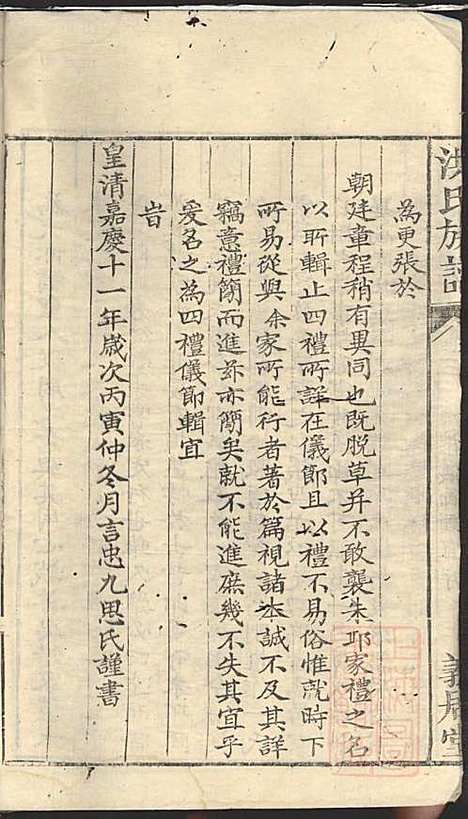 洪氏族譜
義居堂
為更張於
朝廷章程稍有異同也既脫草并不敢襲朱耶家禮之名
以所輯止四禮所詳在儀節且以禮不易俗惟就時下
所易從與余家所能行者著於篇視諸本誠不及其詳
竊意禮簡而進亦簡矣就不能進庶幾不失其宜乎
爰名之為四禮儀節輯宜
旹
皇清嘉慶十一年歲次丙寅仲冬月言忠九思氏謹書